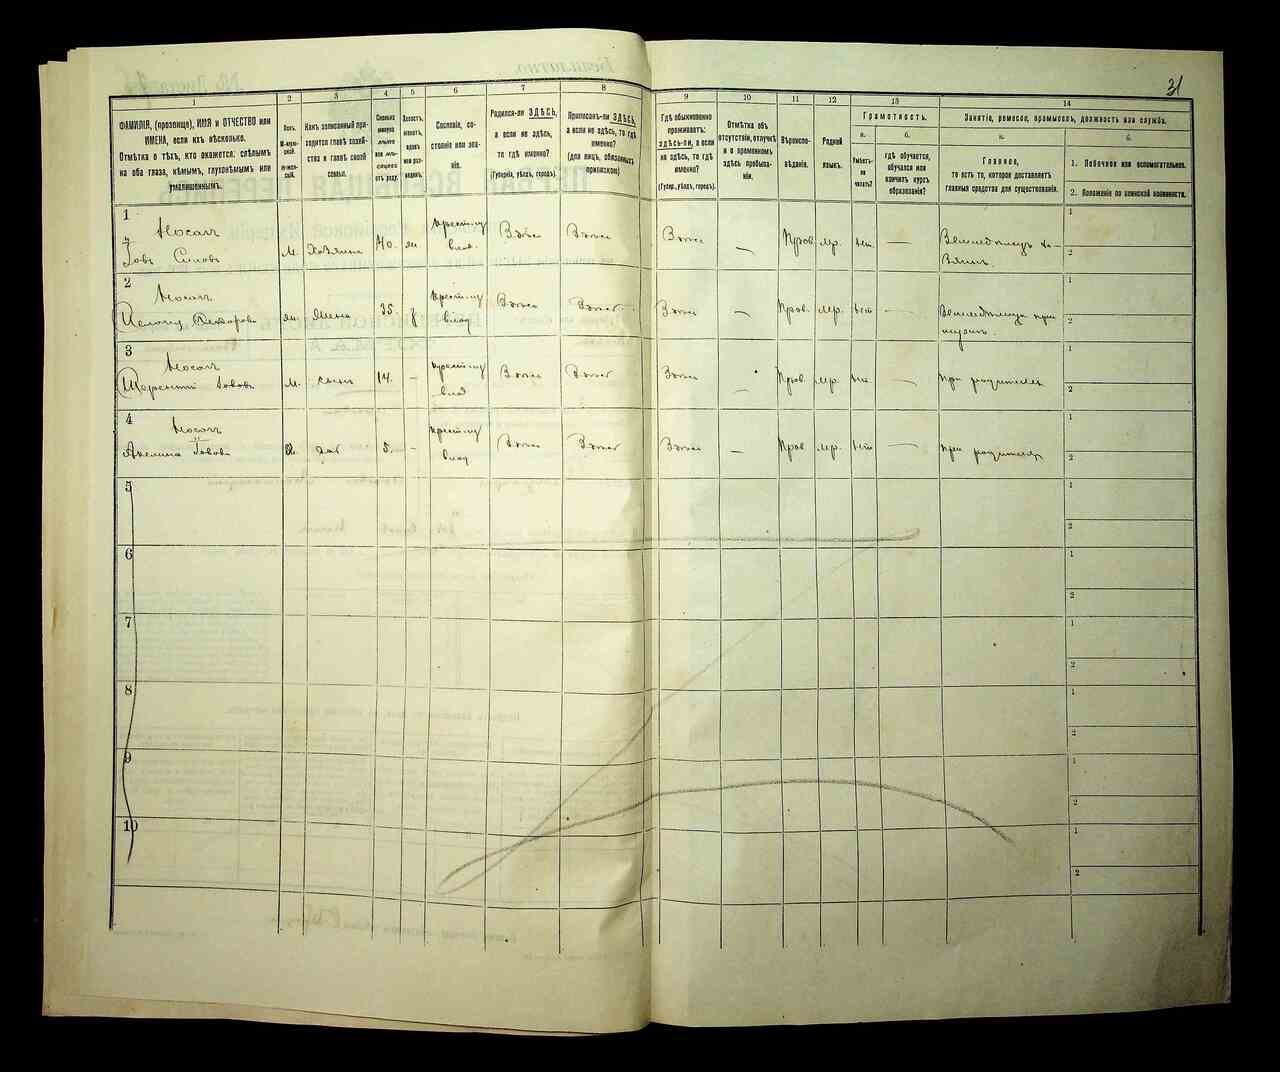 31
1
2
3
4
5
6
7
8
9
10
11
12
13
14
ФАМИЛІЯ, (прозвище), ИМЯ и ОТЧЕСТВО или
ИМЕНА, если ихъ нѣсколько.
Отмѣтка о тѣхъ, кто окажется: слѣпымъ
на оба глаза, нѣмымъ, глухонѣмымъ или
умалишеннымъ.
Полъ.
М-мужской.
Ж-женскій.
Какъ записанный приходится
главѣ хозяйства
и главѣ своей
семьи.
Сколько
минуло
лѣтъ
или мѣсяцевъ
отъ роду.
Холостъ,
женатъ,
вдовъ
или разведенъ.
Сословіе, состояніе
или званіе.
Родился-ли ЗДѢСЬ,
а если не здѣсь,
то гдѣ именно?
(Губернія, уѣздъ, городъ).
Приписанъ-ли ЗДѢСЬ,
а если не здѣсь, то гдѣ
именно?
(для лицъ, обязанныхъ
припискою)
Гдѣ обыкновенно
проживаетъ:
здѣсь-ли, а если
не здѣсь, то гдѣ
именно?
(Губер., уѣздъ, городъ).
Отмѣтка объ
отсутствіи, отлучкѣ
и о временномъ
здѣсь пребываніи.
Вѣроисповѣданіе.
Родной
языкъ.
Грамотность.
а.
Умѣетъ-ли
читать?
б.
гдѣ обучается,
обучался или
кончилъ курсъ
образованія?
Занятіе, ремесло, промыселъ, должность или служба.
а.
Главное,
то есть то, которое доставляетъ
главныя средства для существованія.
б.
1. Побочное или вспомогательное.
2. Положеніе по воинской повинности.
1
Носачъ
Іовъ Силовъ
М.
Хозяинъ
40.
ж
крест. изъ
влад.
Здѣсь
Здѣсь
Здѣсь
—
Прав.
мр.
нѣт
—
Земледѣлецъ хо-
зяинъ.
1
2
2
Носачъ
ж.
Жена
35
крест. изъ
влад
Здѣсь
Здѣсь
Здѣсь
—
Прав.
мр.
нѣт
—
1
2
3
Носачъ
Терентій Іововъ
М.
сынъ
14.
-
крест. изъ
влад
Здѣсь
Здѣсь
Здѣсь
—
Прав
мр.
—
при родителѣ
1
2
4
Носачъ
Акелина Іовова
5.
-
крест. изъ
влад
Здѣсь
Здѣсь
Здѣсь
—
Прав
мр.
нѣт
—
при родителѣ
1
2
5
1
2
6
1
2
7
1
2
8
1
2
9
1
2
10
1
2